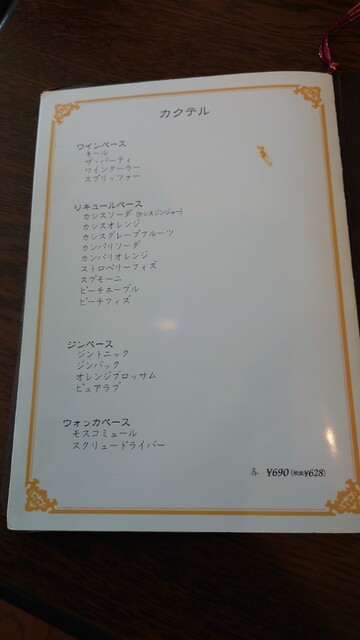 カクテル
ワインベース
キール
ザ・パーティ
ワインクーラー
スプリッツァー
リキュールベース
カシスソーダ(カシスジンジャー)
カシスオレンジ
カシスグレープフルーツ
カンパリソーダ
カンパリオレンジ
ストロベリーフィズ
スプモーニ
ピーチネーブル
ピーチフィズ
ジンベース
ジントニック
ジンバック
オレンジブロッサム
ピュアラブ
ウォッカベース
モスコミュール
スクリュードライバー
各 ¥690(税抜¥628)